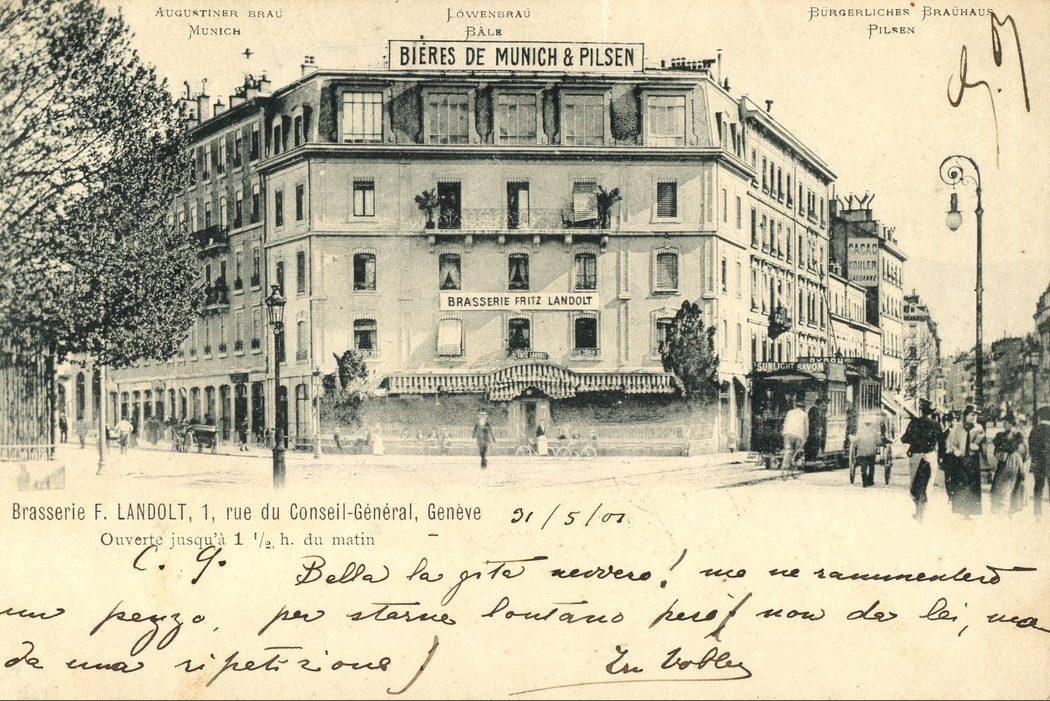 AUGUSTINER BRAÜ
MUNICH
LÖWENBRAÜ
BÂLE
BÜRGERLICHES BRAÜHAUS
PILSEN
BIÈRES DE MUNICH & PILSEN
BRASSERIE FRITZ LANDOLT
FRITZ LANDOLT
CACAO
KOHLER
LAUSANNE
SUNLIGHT SAVON
Brasserie F. LANDOLT, 1, rue du Conseil-Général, Genève
31/5/01
Ouverte jusqu'à 1 1/2 h. du matin
C. G. Bella la gita nevvero! me ne rammenterò
un pezzo, per starne lontano però non da lei, ma
da una ripetizione)